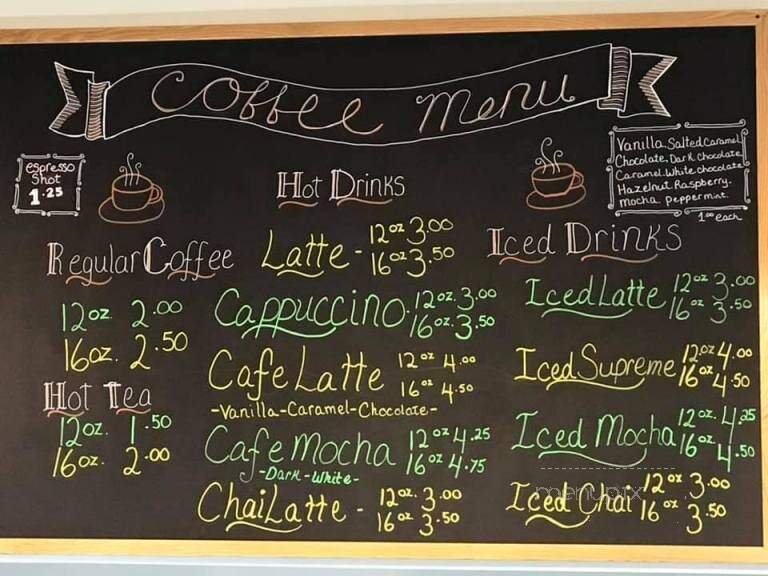 Coffee Menu
espresso
shot
1.25
Vanilla. Salted Caramel
Chocolate. Dark Chocolate
Caramel. White chocolate
Hazelnut. Raspberry.
mocha. peppermint.
1.00 each
Regular Coffee
12oz 2.00
16oz. 2.50
Hot Tea
12oz. 1.50
16oz. 2.00
Hot Drinks
Latte - 12oz 3.00
16oz 3.50
Cappuccino. 12oz. 3.00
16oz. 3.50
Cafe Latte 12oz 4.00
16oz 4.50
-Vanilla-Caramel-Chocolate-
Cafe mocha 12oz 4.25
16oz 4.75
-Dark-White-
Chai Latte - 12oz. 3.00
16oz 3.50
Iced Drinks
Iced Latte 12oz 3.00
16oz 3.50
Iced Supreme 12oz 4.00
16oz 4.50
Iced Mocha 12oz. 4.25
16oz 4.50
Iced Chai 12oz 3.00
16oz 3.50
menupix